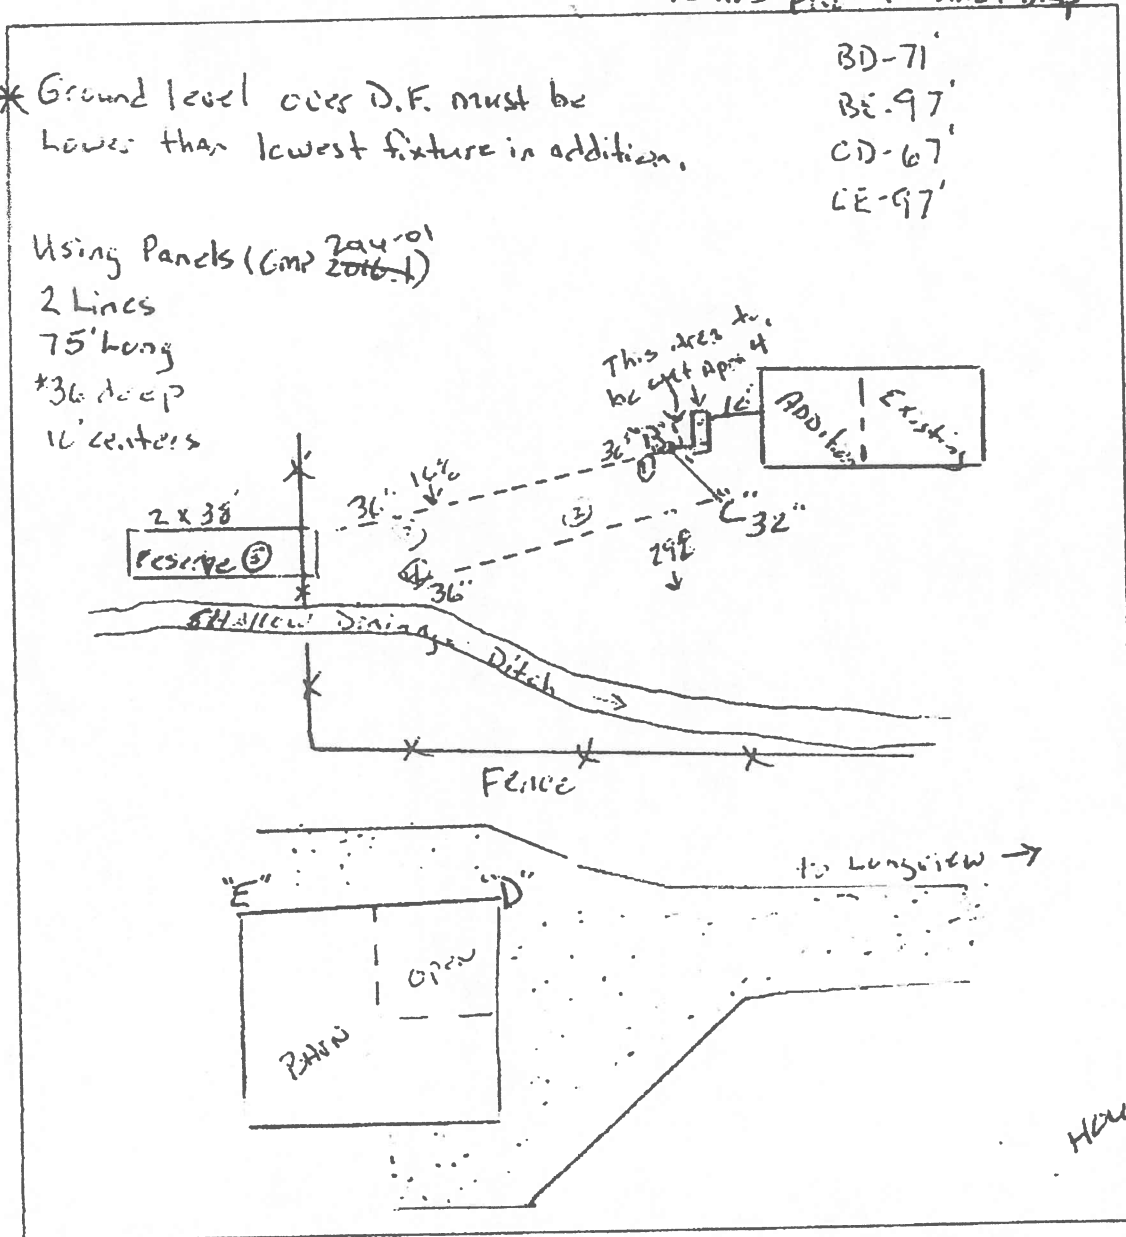 BD-71'
BE-97'
CD-67'
CE-97'
* Ground level over D.F. must be
Lower than lowest fixture in addition.
Using Panels (GMP
2 Lines
75' Long
*36 deep
10' centers
This Area to
be cut
ADDition
Existing
36"
"B"
36"
16%
"C" 32"
2
2 x 38'
reserve 3
36"
SHAllow Drainage Ditch →
Fence
to Longview →
"E"
"D"
OPEN
BARN